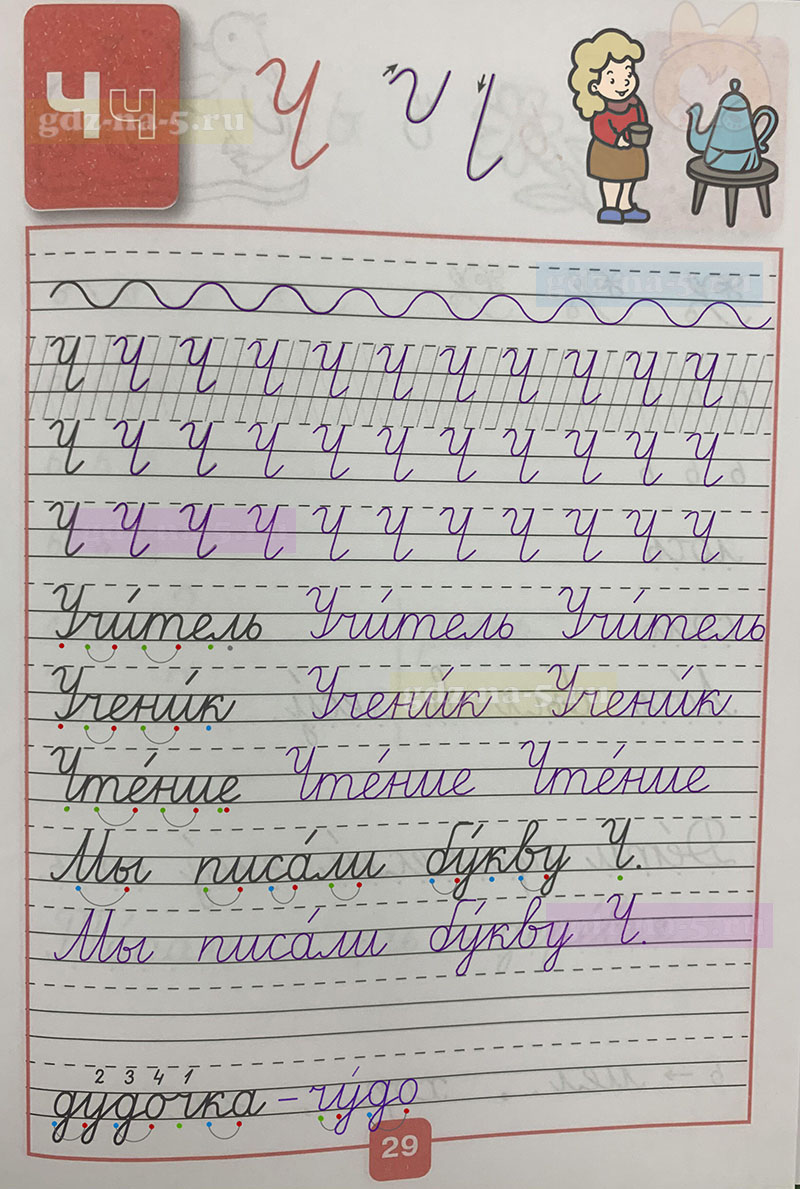 Чч Ч
gdz-na-5.ru
gdz-na-5.ru
Ч Ч Ч Ч Ч Ч Ч Ч Ч Ч Ч
Ч Ч Ч Ч Ч Ч Ч Ч Ч Ч Ч
Ч Ч Ч Ч Ч Ч Ч Ч Ч Ч Ч
gdz-na-5.ru
Учи́тель Учи́тель Учи́тель
Учени́к Учени́к Учени́к
gdz-na-5.ru
Чте́ние Чте́ние Чте́ние
Мы писа́ли бу́кву Ч.
Мы писа́ли бу́кву Ч.
gdz-na-5.ru
2 3 4 1
дудочка – чу́до
29